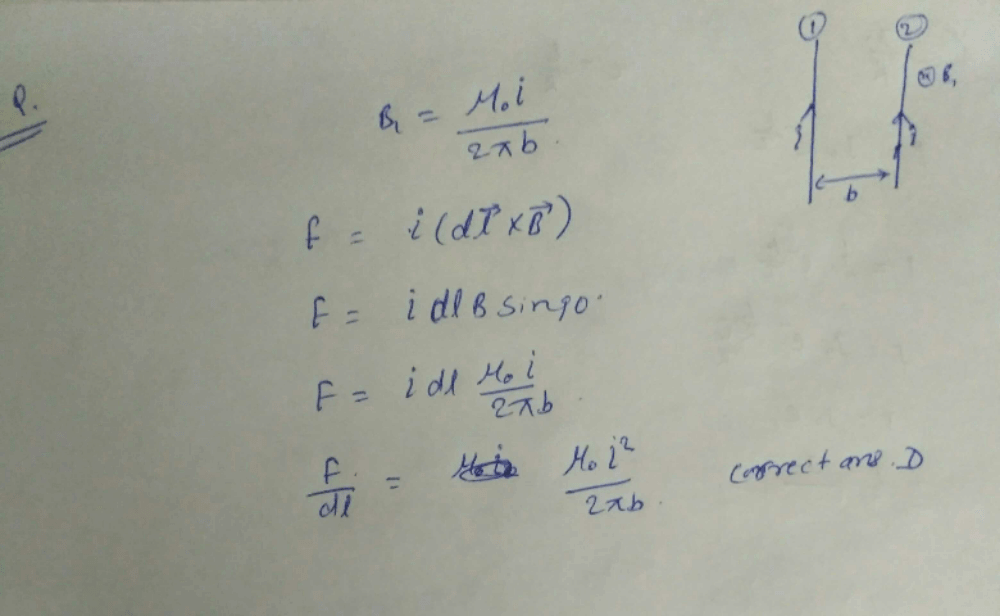 ① ②
Q.
B₁ = μ₀i / 2πb
⊗ B₁
b
F = i(dl⃗ × B⃗)
F = i dl B sin90°
F = i dl μ₀i / 2πb
F / dl = μ₀i² / 2πb correct ans. D